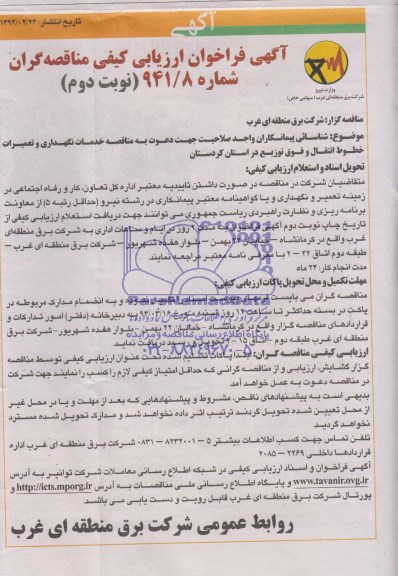 تاریخ انتشار: ۱۳۹۴/۰۲/۲۲
آگهی
آگهی فراخوان ارزیابی کیفی مناقصه‌گران
شماره ۹۴۱/۸ (نوبت دوم)
وزارت نیرو
شرکت برق منطقه‌ای غرب (سهامی خاص)
مناقصه گزار: شرکت برق منطقه ای غرب
موضوع: شناسائی پیمانکاران واجد صلاحیت جهت دعوت به مناقصه خدمات نگهداری و تعمیرات
خطوط انتقال و فوق توزیع در استان کردستان
تحویل اسناد و استعلام ارزیابی کیفی:
متقاضیان شرکت در مناقصه در صورت داشتن تاییدیه معتبر اداره کل تعاون، کار و رفاه اجتماعی در
زمینه تعمیر و نگهداری و یا گواهینامه معتبر پیمانکاری در رشته نیرو (حداقل رتبه ۵) از معاونت
برنامه ریزی و نظارت راهبردی ریاست جمهوری می توانند جهت دریافت استعلام ارزیابی کیفی از
تاریخ چاپ نوبت دوم آگهی روز در ایام و ساعات اداری به شرکت برق منطقه‌ای
غرب واقع در کرمانشاه - خیابان ۲۲ بهمن - بلوار هفده شهریور - شرکت برق منطقه ای غرب -
طبقه دوم اتاق ۲۲ - ۲ با معرفی نامه معتبر مراجعه نمایند
مدت انجام کار: ۲۴ ماه
مهلت تکمیل و محل تحویل پاکات ارزیابی کیفی:
مناقصه گران می بایست و به انضمام مدارک مربوطه در
پاکت در بسته حداکثر تا ساعت ۱۴ روز به دبیرخانه (دفتر) امور تدارکات و
قراردادهای مناقصه گزار واقع در کرمانشاه - خیابان ۲۲ بهمن - بلوار هفده شهریور - شرکت برق
منطقه ای غرب طبقه دوم اتاق ۱۵ - تحویل و رسید دریافت نمایند
ارزیابی کیفی مناقصه گران: پاکات تسلیم شده تحت عنوان ارزیابی کیفی توسط مناقصه
گزار گشایش، ارزیابی و از مناقصه گرانی که حداقل امتیاز کیفی لازم را کسب را نمایند جهت شرکت
در مناقصه دعوت به عمل خواهد آمد
بدیهی است به پیشنهادهای ناقص، مشروط و پیشنهادهایی که بعد از مهلت و یا در محل غیر
از محل تعیین شده تحویل گردند ترتیب اثر داده نخواهد شد و مدارک تحویل شده مسترد
نخواهد گردید
تلفن تماس جهت کسب اطلاعات بیشتر ۵ - ۸۲۳۲۰۰۱ - ۰۸۳۱ شرکت برق منطقه ای غرب اداره
قراردادها داخلی ۲۲۶۹ - ۲۰۸۵
آگهی فراخوان و اسناد ارزیابی کیفی در شبکه اطلاع رسانی معاملات شرکت توانیر به آدرس
www.tavanir.ovg.ir و پایگاه اطلاع رسانی ملی مناقصات به آدرس http://iets.mporg.ir و
پورتال شرکت برق منطقه ای غرب قابل رویت و دست یابی می باشد
روابط عمومی شرکت برق منطقه ای غرب